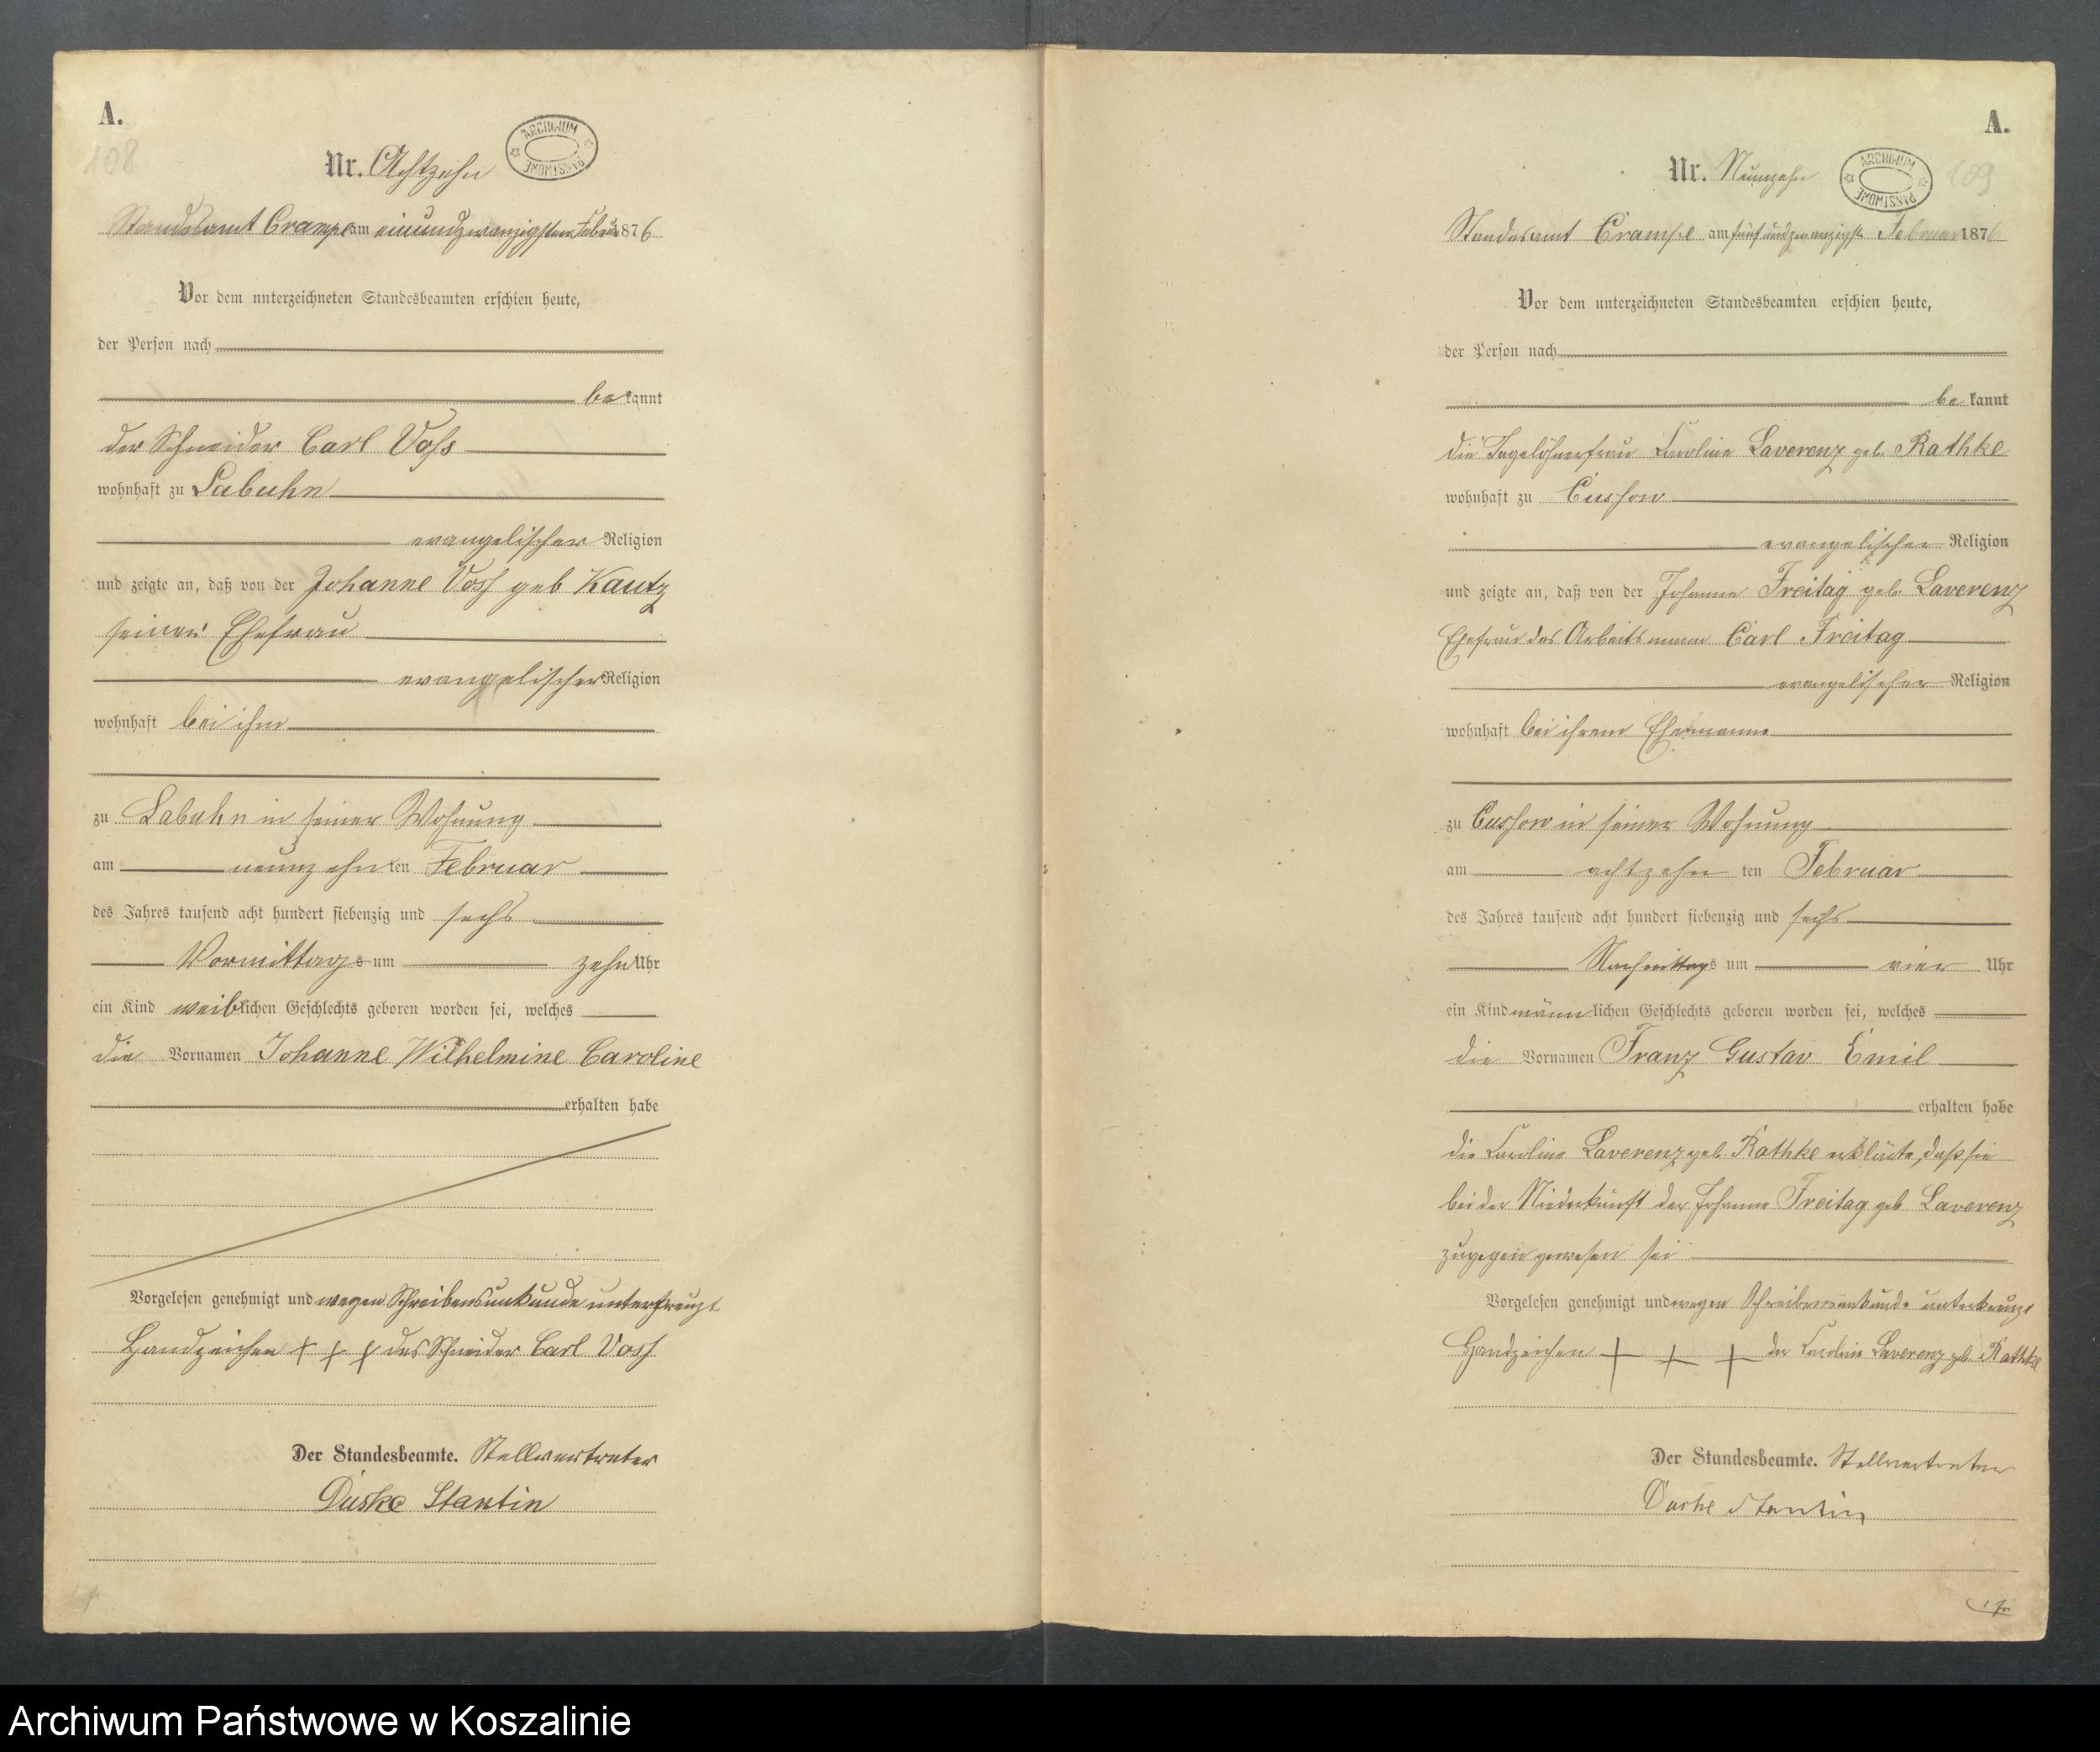 A.
108
Nr. Achtzehn
ARCHIWUM PAŃSTWOWE
Standesamt Crampe am einundzwanzigsten Februar 1876
Vor dem unterzeichneten Standesbeamten erschien heute,
der Person nach
bekannt
der Schneider Carl Voss
wohnhaft zu Labuhn
evangelischer Religion
und zeigte an, daß von der Johanne Voss geb Kautz
seiner Ehefrau
evangelischer Religion
wohnhaft bei ihm
zu Labuhn in seiner Wohnung
am neunzehnten Februar
des Jahres tausend acht hundert siebenzig und sechs
Vormittags um zehn Uhr
ein Kind weiblichen Geschlechts geboren worden sei, welches
die Vornamen Johanne Wilhelmine Caroline
erhalten habe
Vorgelesen genehmigt und wegen Schreibensunkunde unterkreuzt
Handzeichen + + + des Schneider Carl Voss
Der Standesbeamte. Stellvertreter
Duske Stantin
A.
109
Nr. Neunzehn
ARCHIWUM PAŃSTWOWE
Standesamt Crampe am fünfundzwanzigst Februar 1876
Vor dem unterzeichneten Standesbeamten erschien heute,
der Person nach
bekannt
die Tagelöhnerfrau Caroline Laverenz geb. Rathke
wohnhaft zu Cussow
evangelischer Religion
und zeigte an, daß von der Johanne Freitag geb. Laverenz
Ehefrau des Arbeitsmann Carl Freitag
evangelischer Religion
wohnhaft bei ihrem Ehemanne
zu Cussow in seiner Wohnung
am achtzehnten Februar
des Jahres tausend acht hundert siebenzig und sechs
Nachmittags um vier Uhr
ein Kind männlichen Geschlechts geboren worden sei, welches
die Vornamen Franz Gustav Emil
erhalten habe
die Caroline Laverenz geb. Rathke erklärte, daß sie
bei der Niederkunft der Johanne Freitag geb Laverenz
zugegen gewesen sei
Vorgelesen genehmigt und wegen Schreibensunkunde unterkreuzt
Handzeichen + + + der Caroline Laverenz geb. Rathke
Der Standesbeamte. Stellvertreter
Duske Stantin
Archiwum Państwowe w Koszalinie